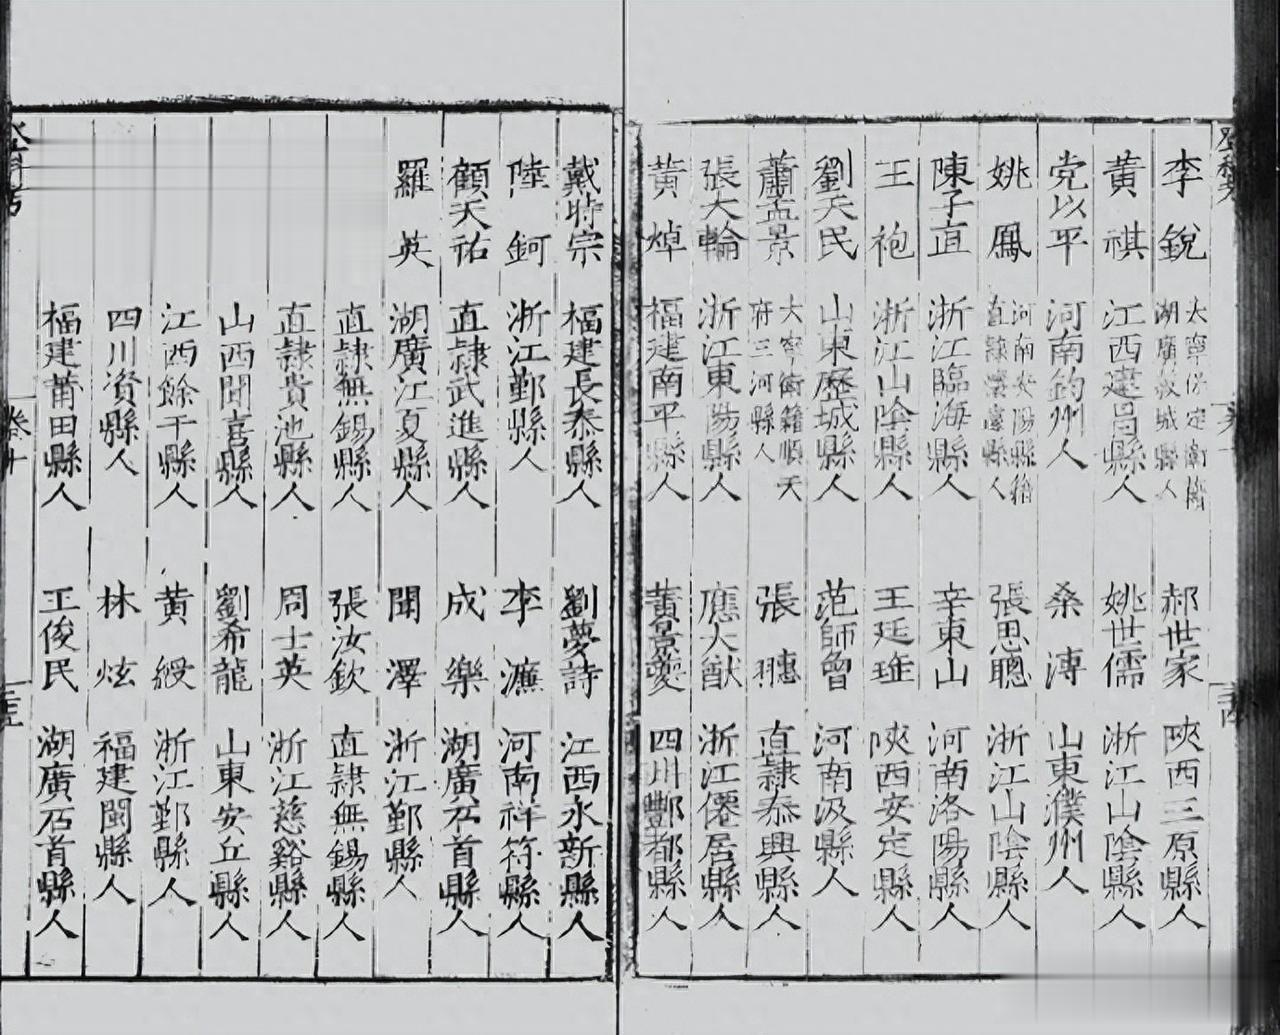 李銳 太寧保定衛籍湖廣穀城縣人 郝世家 陝西三原縣人
黃祺 江西建昌縣人 姚世儒 浙江山陰縣人
党以平 河南鈞州人 桑溥 山東濮州人
姚鳳 河南安陽縣籍直隸懷遠縣人 張思聰 浙江山陰縣人
陳子直 浙江臨海縣人 辛東山 河南洛陽縣人
王袍 浙江山陰縣人 王廷 陝西安定縣人
劉天民 山東歷城縣人 范師曾 河南汲縣人
蕭孟景 大寧衛籍順天府三河縣人 張 直隸泰興縣人
張大輪 浙江東陽縣人 應大猷 浙江僊居縣人
黃焯 福建南平縣人 黃景夔 四川酆都縣人
戴時宗 福建長泰縣人 劉夢詩 江西永新縣人
陸鈳 浙江鄞縣人 李濂 河南祥符縣人
顧天祐 直隸武進縣人 成樂 湖廣石首縣人
羅英 湖廣江夏縣人 聞澤 浙江鄞縣人
直隸無錫縣人 張汝欽 直隸無錫縣人
直隸貴池縣人 周士英 浙江慈谿縣人
山西聞喜縣人 劉希龍 山東安丘縣人
江西餘干縣人 黃綬 浙江鄞縣人
四川資縣人 林炫 福建閩縣人
福建莆田縣人 王俊民 湖廣石首縣人
卷十